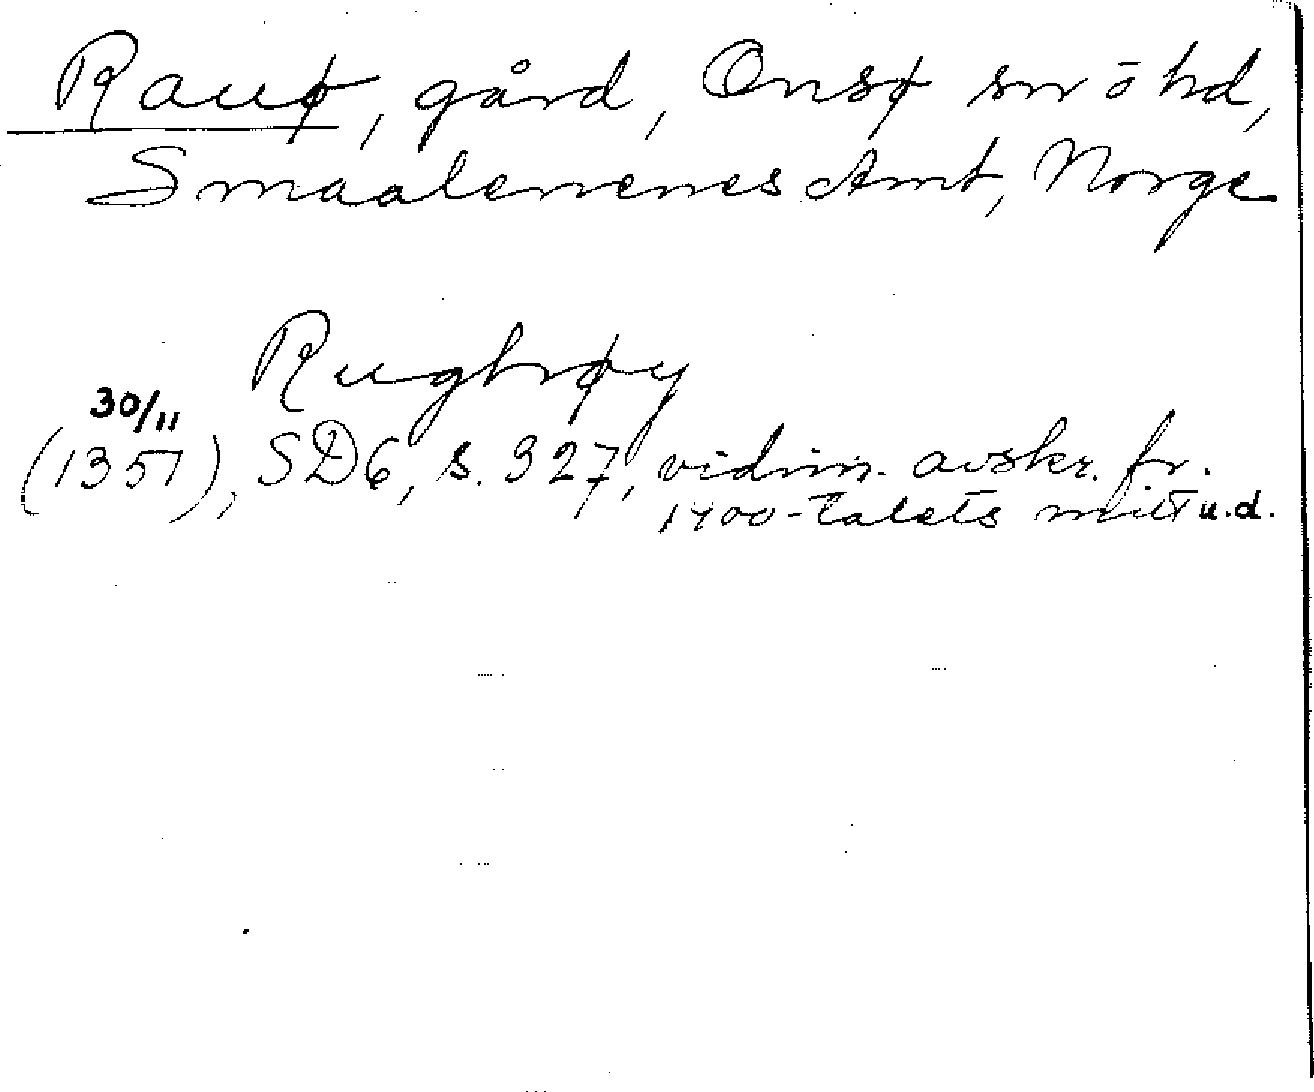 Rauø, gård, Onsø sn o hd,
Smaalenenes Amt, Norge
Rughrøy
30/11
(1351), SD6, s. 327, vidim. avskr. fr.
1400-talets mitt u.d.